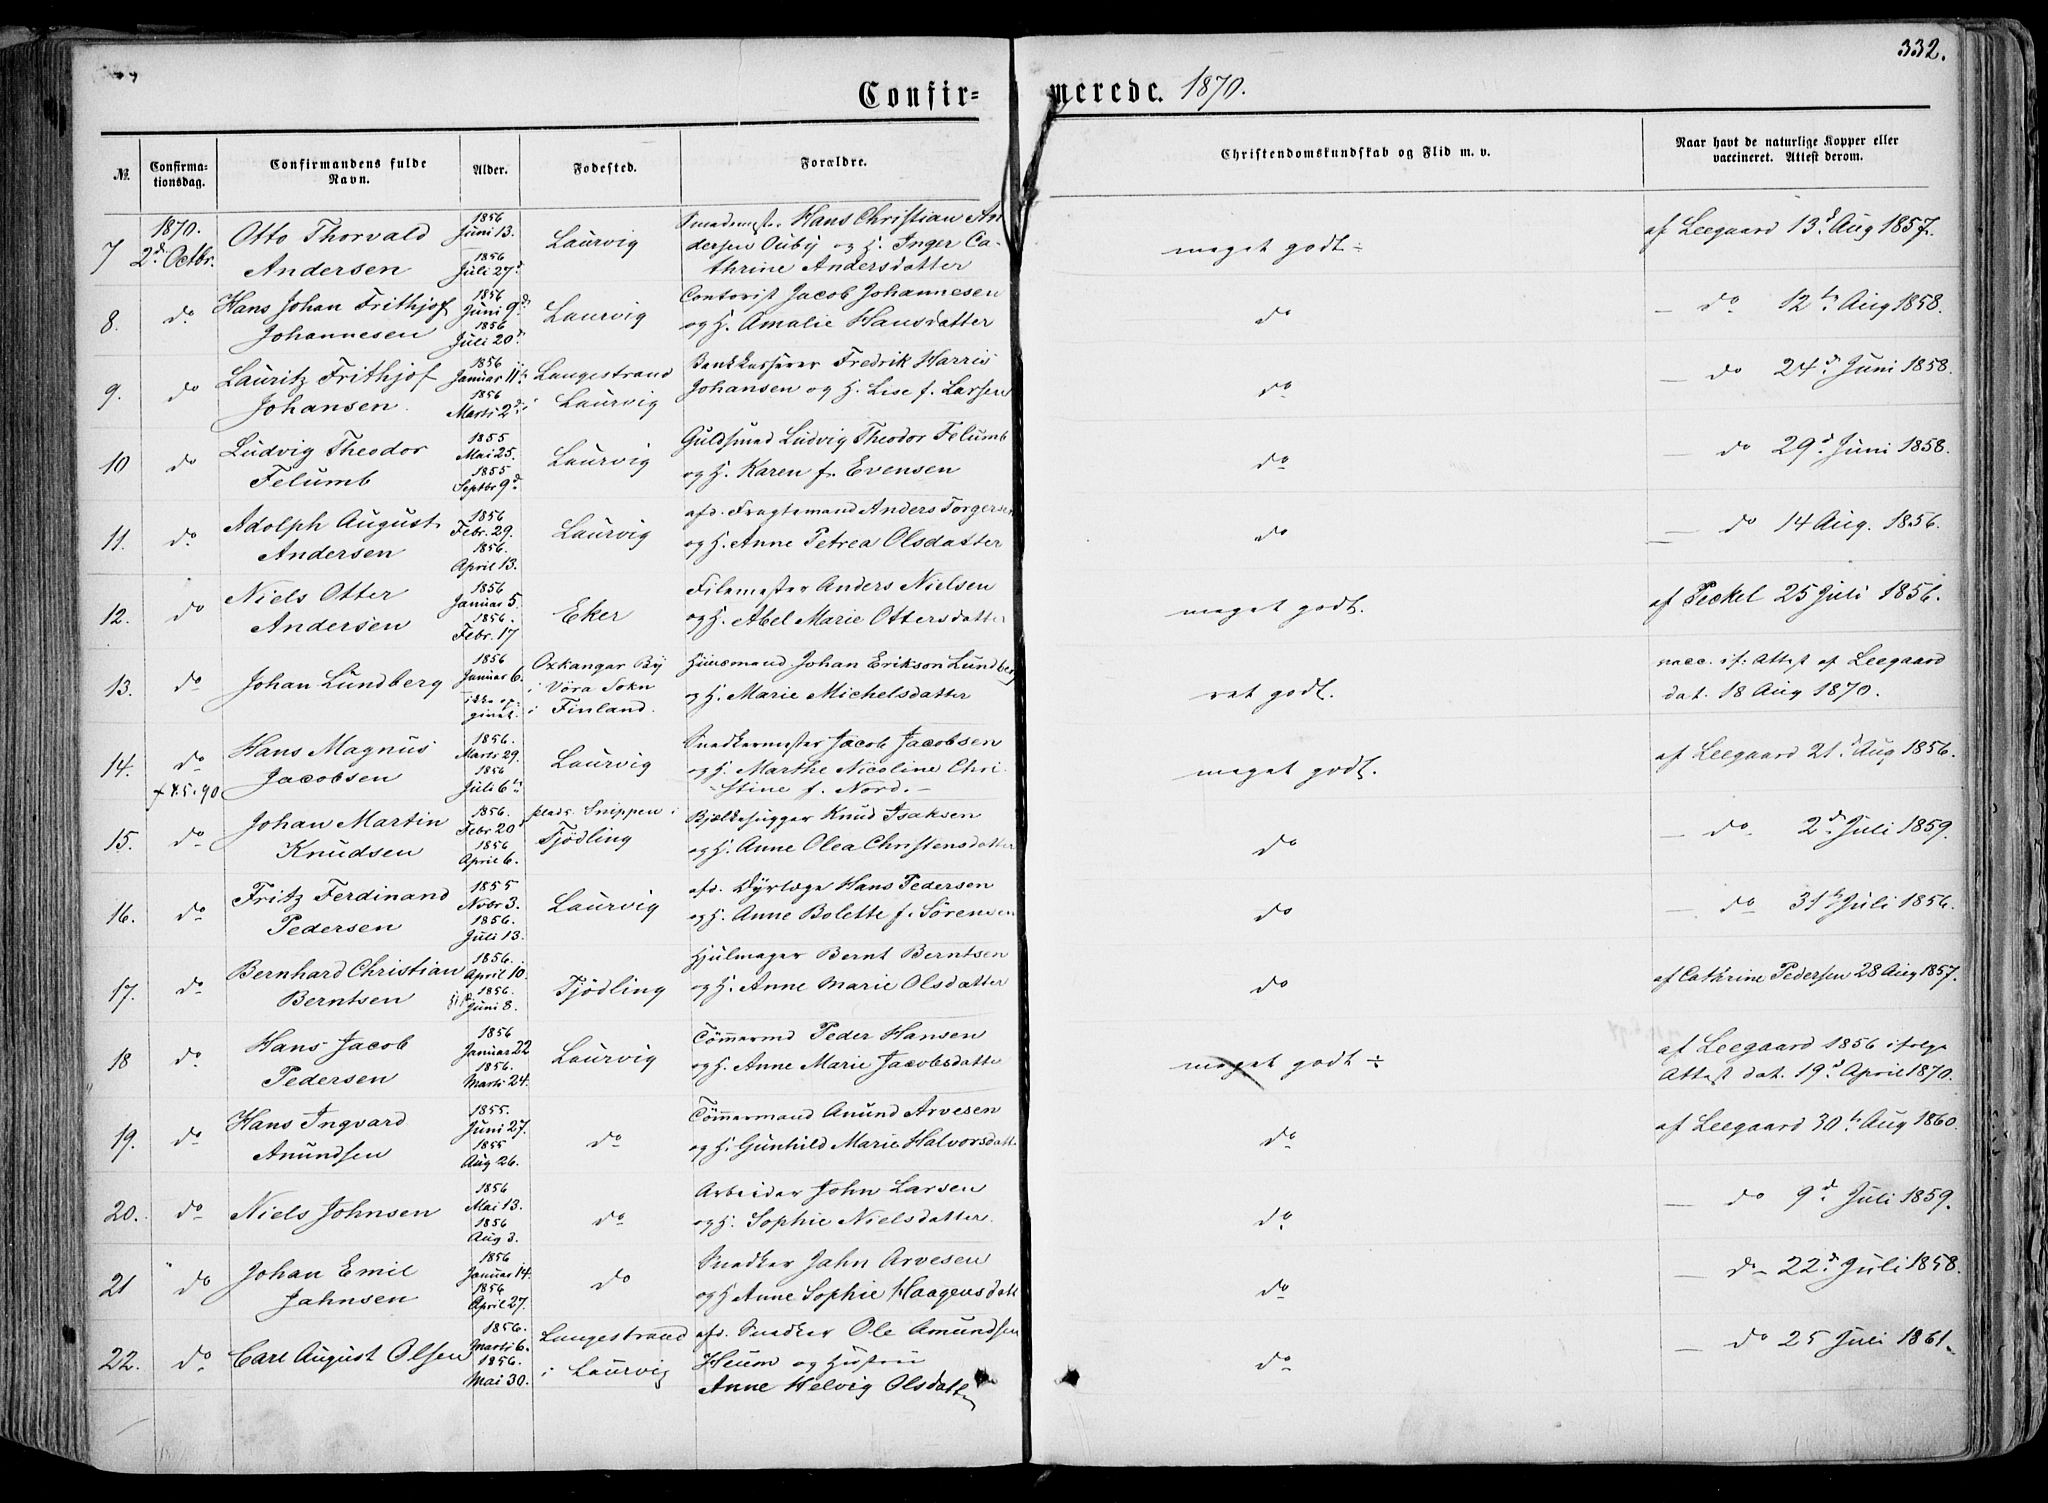 332.
Confir- merede. 1870.
№. Confirma-tionsdag. Confirmandens fulde Navn. Alder. Fødested. Forældre. Christendomskundskab og Flid m. v. Naar havt de naturlige Kopper eller vaccineret. Attest derom.
1870.
7 2d. Octbr. Otto Thorvald Andersen 1856 Juni 13. 1856 Juli 27d Laurvig Smedemester Hans Christian An-
dersen Ouby og H. Inger Ca-
thrine Andersdatter meget godt ÷ af Leegaard 13d. Aug 1857.
8. do Hans Johan Frithjof Johannesen 1856 Juni 9d. 1856 Juli 20d Laurvig Contorist Jacob Johannesen
og H. Amalie Hansdatter do — do 12te Aug 1858.
9. do Lauritz Frithjof Johansen. 1856 Januar 11te 1856 Marts 2d. Langestrand i Laurvig Bankkasserer Fredrik Harris
Johansen og H. Lise f. Larsen do — do 24d. Juni 1858.
10 do Ludvig Theodor Felumb 1855 Mai 25. 1855 Septbr 9d. Laurvig Guldsmed Ludvig Theodor Felumb
og H. Karen f. Evensen do — do 29d. Juni 1858.
11. do Adolph August Andersen 1856 Febr. 29. 1856. April 13. Laurvig afd. Fragtemand Anders Torgersen
og H. Anne Petrea Olsdatter do — do 14 Aug. 1856.
12. do Niels Otter Andersen 1856 Januar 5. 1856. Febr. 17 Eker Filemester Anders Nielsen
og H. Abel Marie Ottersdatter meget godt. af Peckel 25 Juli 1856.
13. do Johan Lundberg 1856 Januar 6. ikke op-givet. Oxkangar By i Vöra Sokn i Finland. Huusmand Johan Erikson Lundberg
og H. Marie Michelsdatter ret godt. vacc. if: Attest af Leegaard
dat. 18 Aug 1870.
14. do Hans Magnus Jacobsen 1856. Marts 29. 1856 Juli 6te Laurvig Snedkermester Jacob Jacobsen
og H. Marthe Nicoline Chri-
stine f. Nord. — meget godt. af Leegaard 21d. Aug 1856.
15. do Johan Martin Knudsen 1856. Febr 20 1856 April 6. plads. Snippen i Tjødling Bjælkehugger Knud Isaksen
og H. Anne Olea Christensdatter do — do 2d. Juli 1859.
16. do Fritz Ferdinand Pedersen 1855 Novbr 3. 1856. Juli 13. Laurvig afd. Dyrlæge Hans Pedersen
og H. Anne Bolette f. Sørensen do — do 31te Juli 1856.
17. do Bernhard Christian Berntsen 1856. April 10. 1856. Juni 8. Tjødling Hjulmager Bernt Berntsen
og H. Anne Marie Olsdatter do af Cathrine Pedersen 28 Aug 1857.
18 do Hans Jacob Pedersen 1856 Januar 22 1856. Marts 24. Laurvig Tömmermd Peder Hansen
og H. Anne Marie Jacobsdatter meget godt ÷ af Leegaard 1856 ifølge
Attest dat. 19d. April 1870.
19. do Hans Ingvard Anundsen 1855. Juni 27. 1855 Aug 26. do Tömmermand Anund Arvesen
og H. Gunhild Marie Halvorsdatt do af Leegaard 30te Aug 1860.
20. do Niels Johnsen 1856 Mai 13. 1856 Aug 3. do Arbeider John Larsen
og H. Sophie Nielsdatter. do — do 9d. Juli 1859.
21 do Johan Emil Jahnsen 1856 Januar 14. 1856 April 27. do Snedker Jahn Arvesen
og H Anne Sophie Haagensdatt do — do 22d. Juli 1858.
22. do Carl August Olsen 1856. Marts 6. 1856. Mai 30. Langestrand i Laurvig afd. Snedker Ole Amundsen
Heum og Hustru
Anne Helvig Olsdatter do — do 25 Juli 1861.